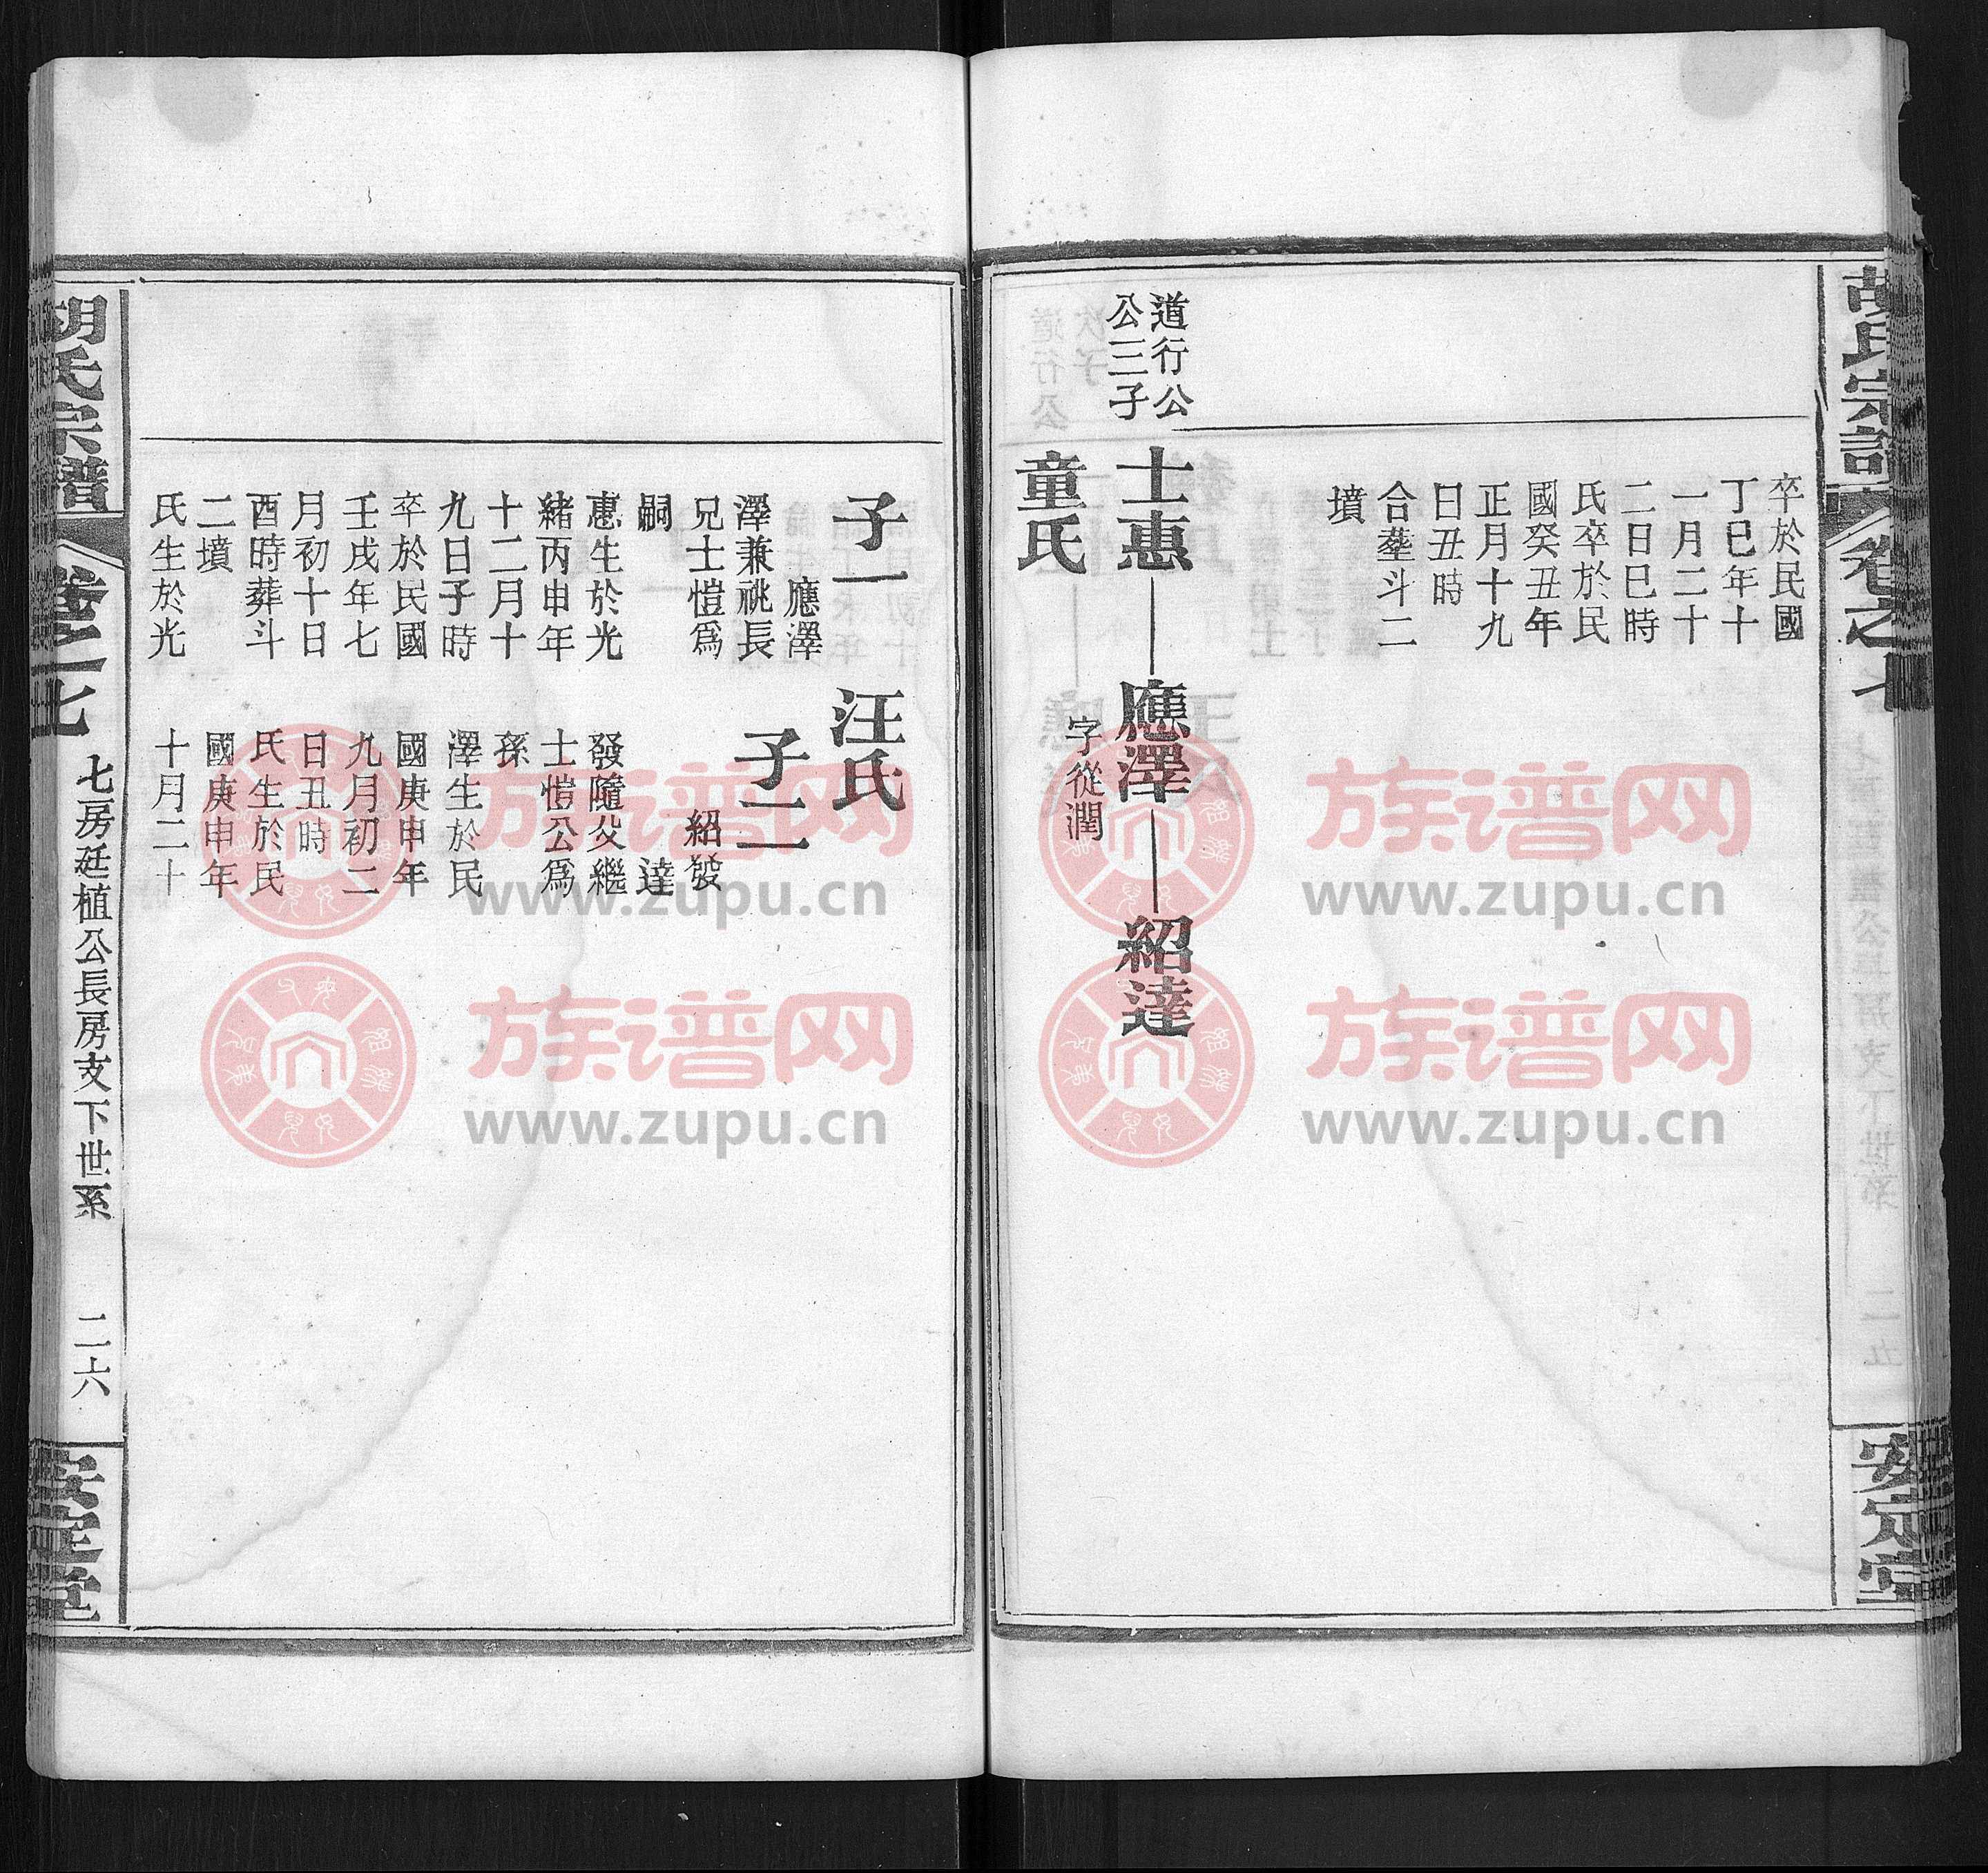 胡氏宗譜
卷之十七
安定堂
卒於民國
丁巳年十
一月二十
二日巳時
氏卒於民
國癸丑年
正月十九
日丑時
合塟斗二
墳
道行公
公三子
士惠——應澤——紹達
字從潤
童氏
子一
應澤
澤兼祧長
兄士愷爲
嗣
惠生於光
緒丙申年
十二月十
九日子時
卒於民國
壬戌年七
月初十日
酉時葬斗
二墳
氏生於光
汪氏
子二
紹發
達
發隨父繼
士愷公爲
孫
澤生於民
國庚申年
九月初二
日丑時
氏生於民
國庚申年
十月二十
胡氏宗譜
卷之十七
七房廷植公長房支下世系
二六
安定堂
族谱网
www.zupu.cn
族谱网
www.zupu.cn
族谱网
www.zupu.cn
族谱网
www.zupu.cn